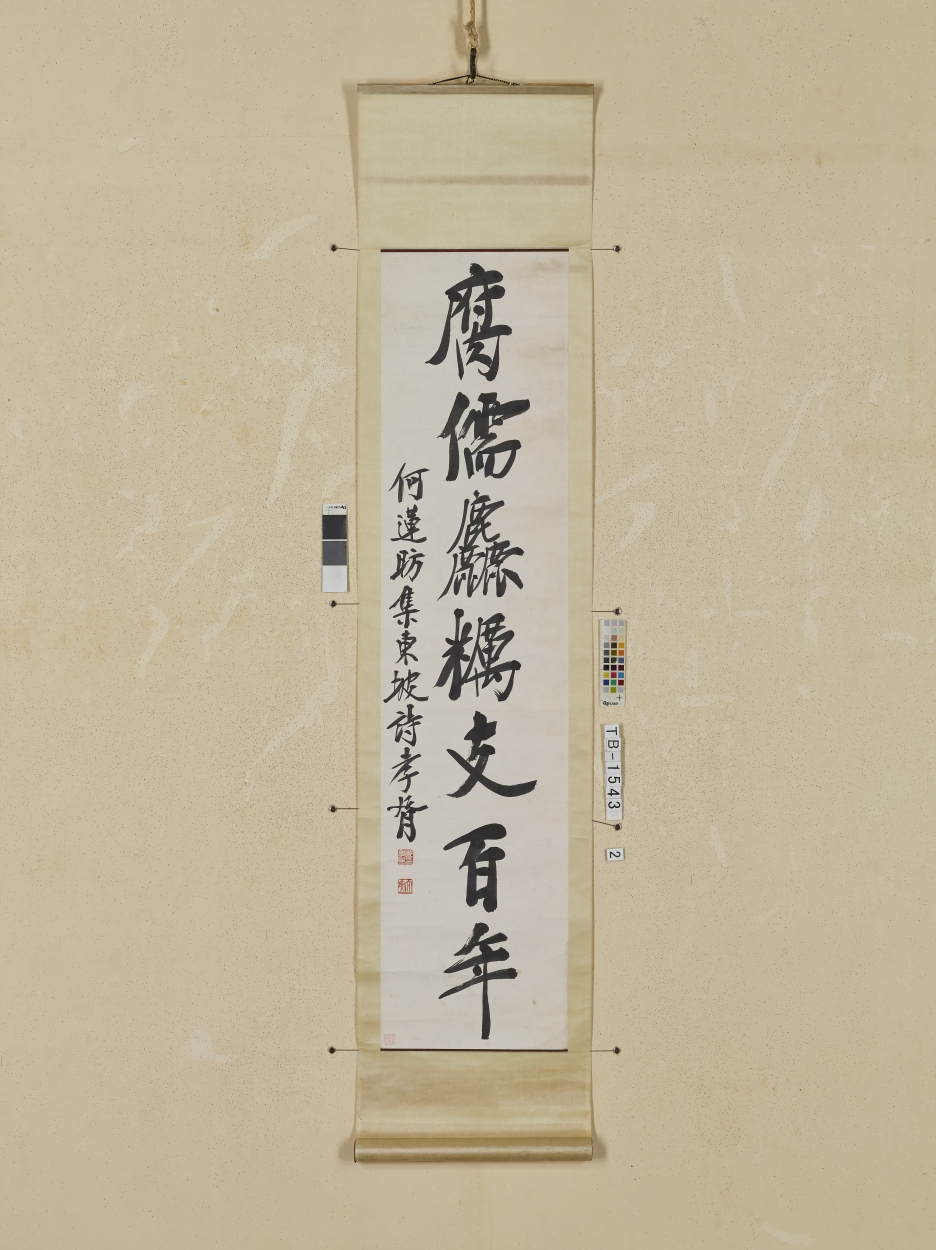 腐儒麤糲支百年
何蓮昉集東坡詩孝胥
TB-1543
2